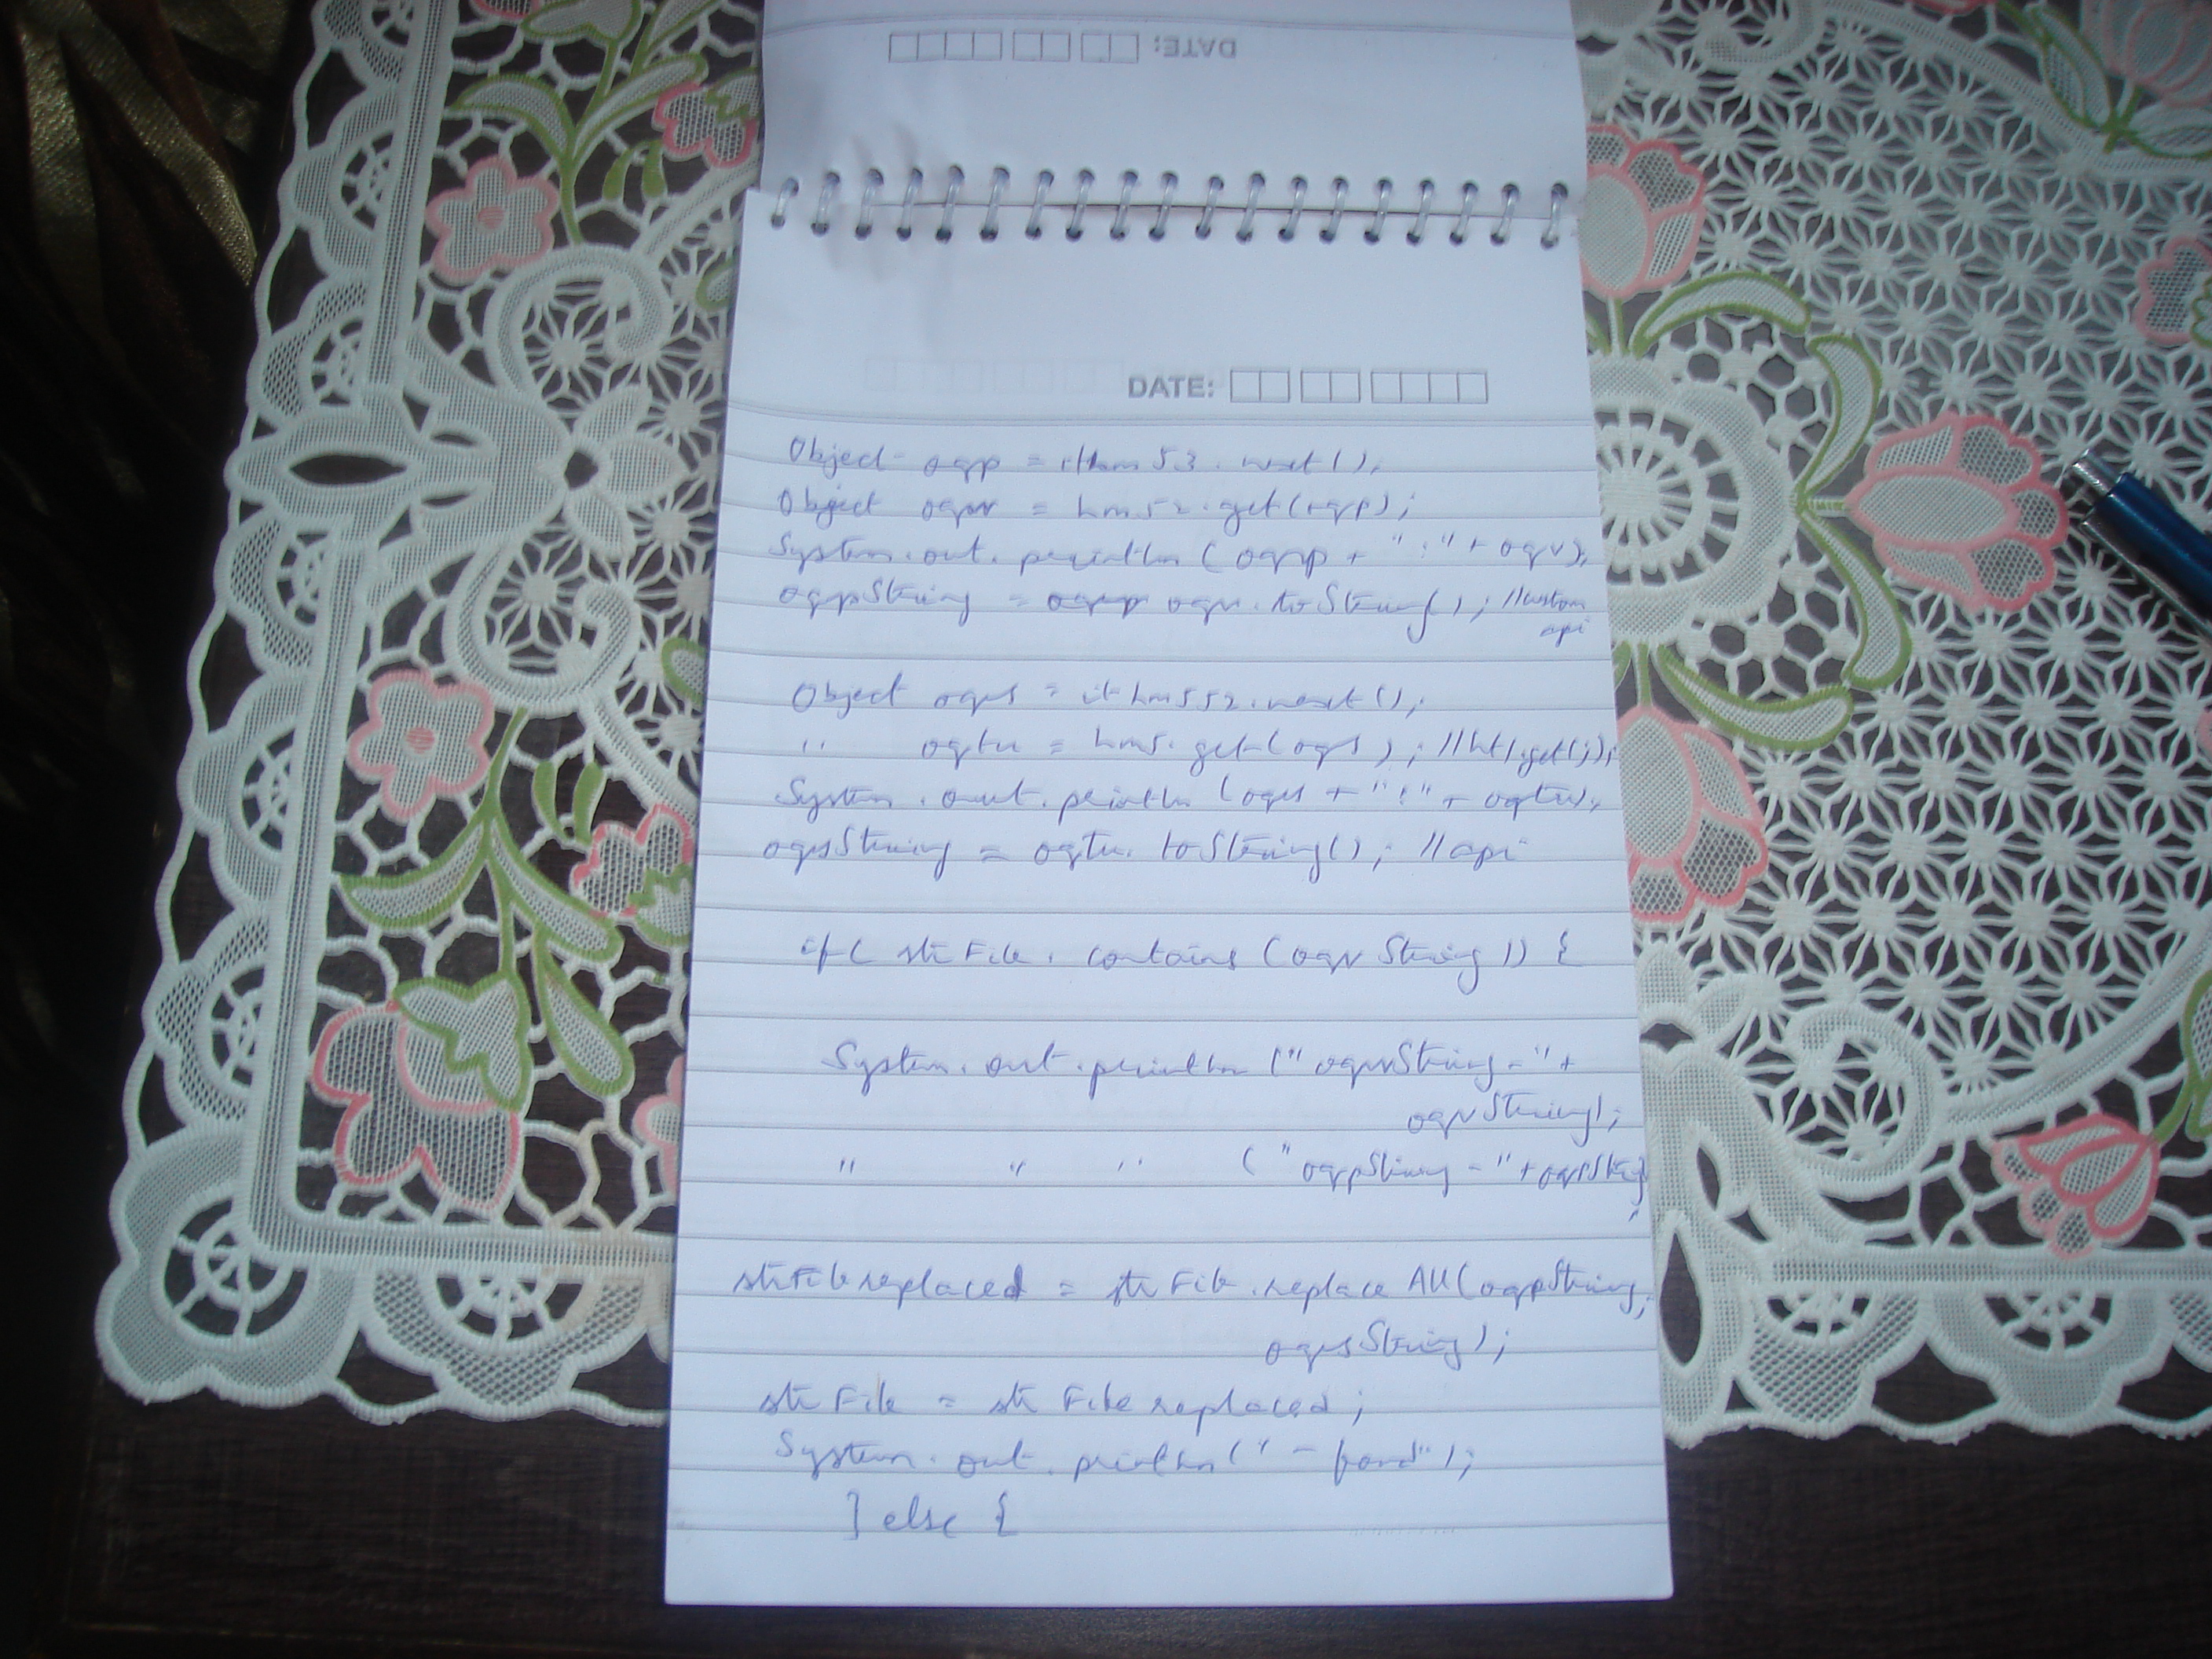 DATE:
DATE:
Object oqp = ithm53.next();
Object oqv = hm52.get(oqp);
System.out.println(oqp + ":" + oqv);
oqpString = oqv.toString(); //custom
api
Object oqs = ithm552.next();
" oqtu = hm5.get(oqs); //ht1.get(j);
System.out.println(oqs + ":" + oqtu);
oqsString = oqtu.toString(); //api
if( strFile.contains(oqvString)) {
System.out.println("oqvString-" +
oqvString);
" " " ("oqpString-" + oqsString)
;
strFilereplaced = strFile.replaceAll(oqpString,
oqsString);
strFile = strFilereplaced;
System.out.println("- found");
} else {